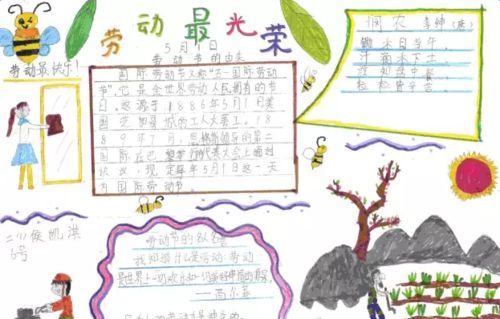 劳动最光荣
5月1日
劳动节的由来
劳动最快乐!
国际劳动节又称"五一国际劳动
节",它是全世界劳动人民拥有的节
日。起源于1886年5月1日美
国芝加哥城的工人大罢工,18
89年7月,恩格斯领导的第二
国际在巴黎举行代表大会上通过
决议,规定每年5月1日这一天
为国际劳动节。
悯农 李绅(唐)
锄禾日当午,
汗滴禾下土。
谁知盘中餐,
粒粒皆辛苦。
二(1)侯凯淇
6号
劳动节的
我知道什么是劳动:劳动
是世界上一切欢乐和一切美好事情的源泉。
——高尔基